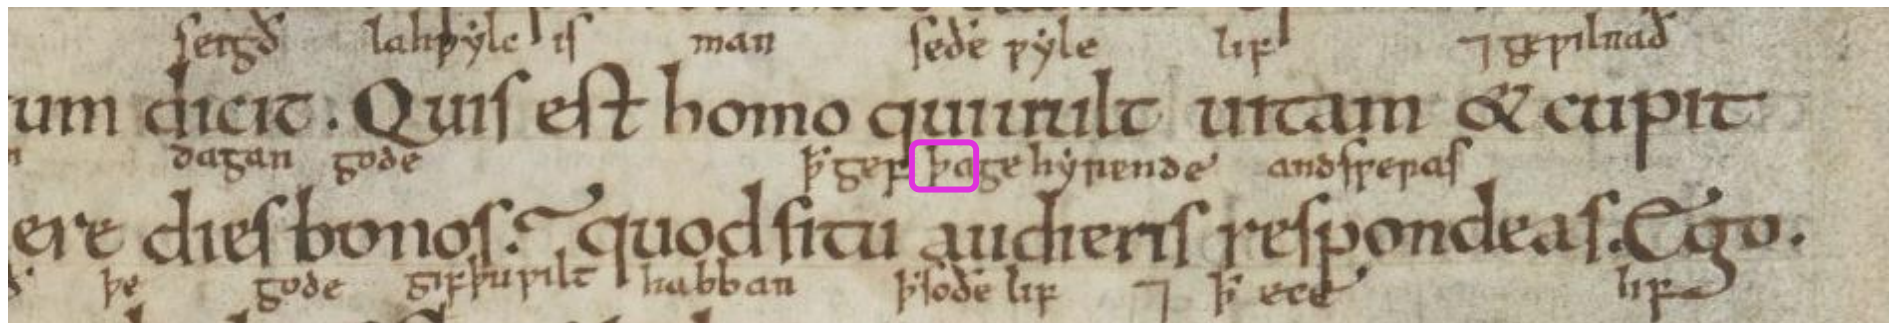 segð lahƿylc is man seðe ƿyle lif ⁊ geƿilnað
um dicit. Quis est homo qui uult uitam & cupit
dagan gode ꝥ gef þa gehyrende andsƿeras
ere dies bonos? quod si tu audieris respondeas. Ego.
þe gode gif þu ƿilt habban ꝥ soðe lif ⁊ ꝥ ece lif